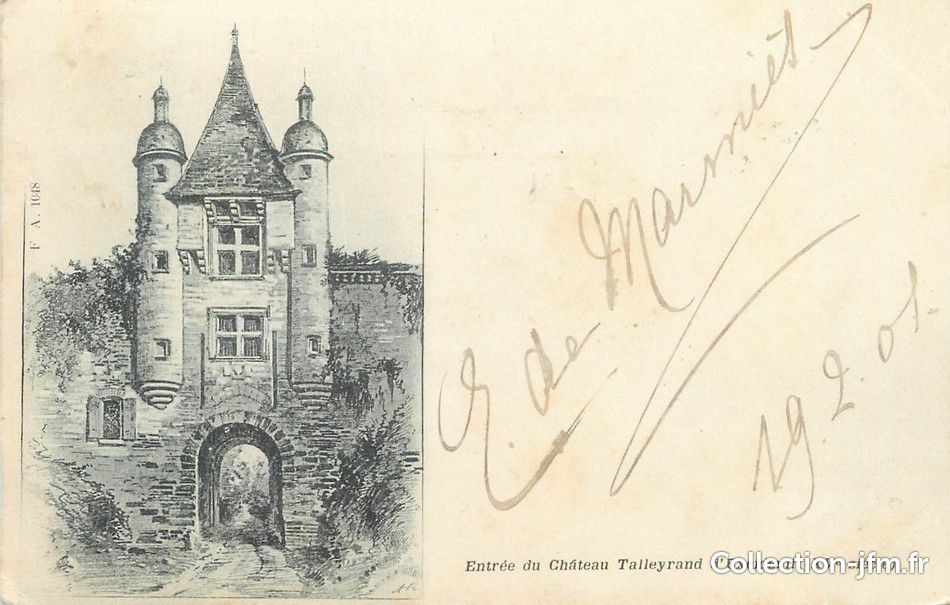 F A. 1048
E. de Marmiès
19.2.01.
Entrée du Château Talleyrand
Collection-jfm.fr